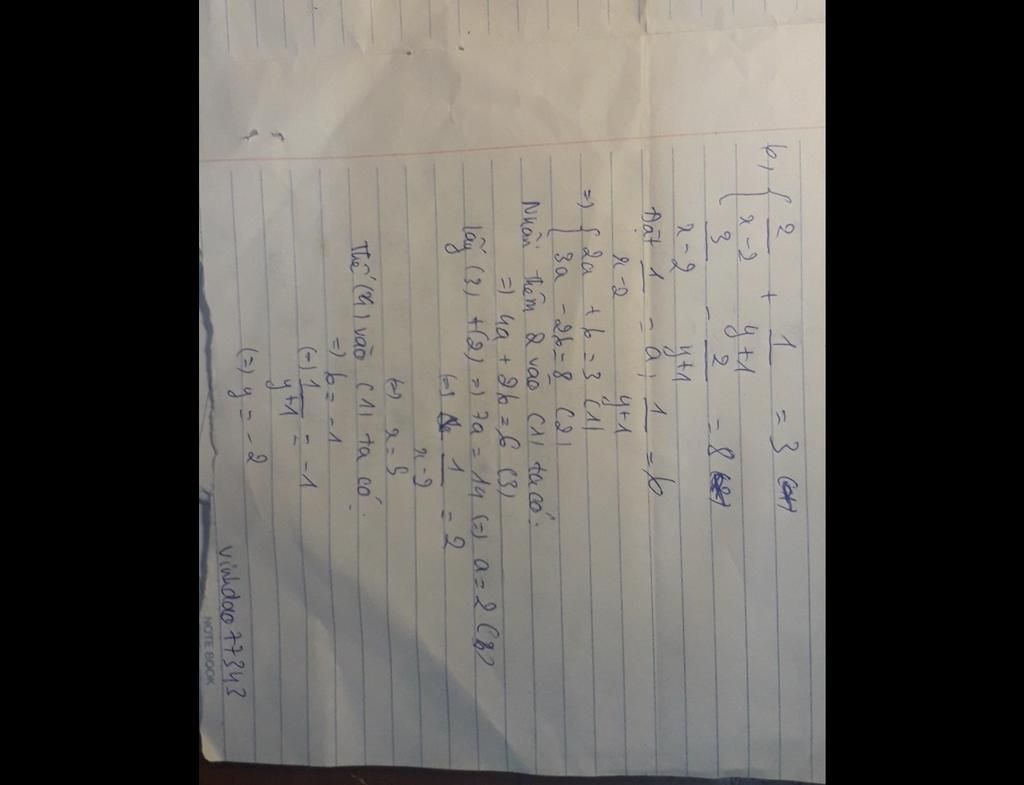 b, { 2/(x-2) + 1/(y+1) = 3
3/(x-2) - 2/(y+1) = 8
Đặt 1/(x-2) = a; 1/(y+1) = b
=) { 2a + b = 3 (1)
3a - 2b = 8 (2)
Nhân thêm 2 vào (1) ta có:
=) 4a + 2b = 6 (3)
lấy (3) + (2) =) 7a = 14 (=) a = 2
(=) 1/(x-2) = 2
(=) x = 5
Thế (4) vào (1) ta có:
=) b = -1
(=) 1/(y+1) = -1
(=) y = -2
vinhdao77343
NOTE BOOK